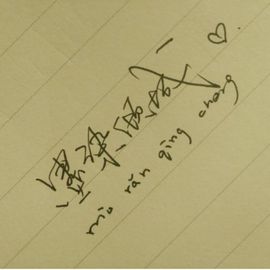 墨染倾城
mò rǎn qīng chéng